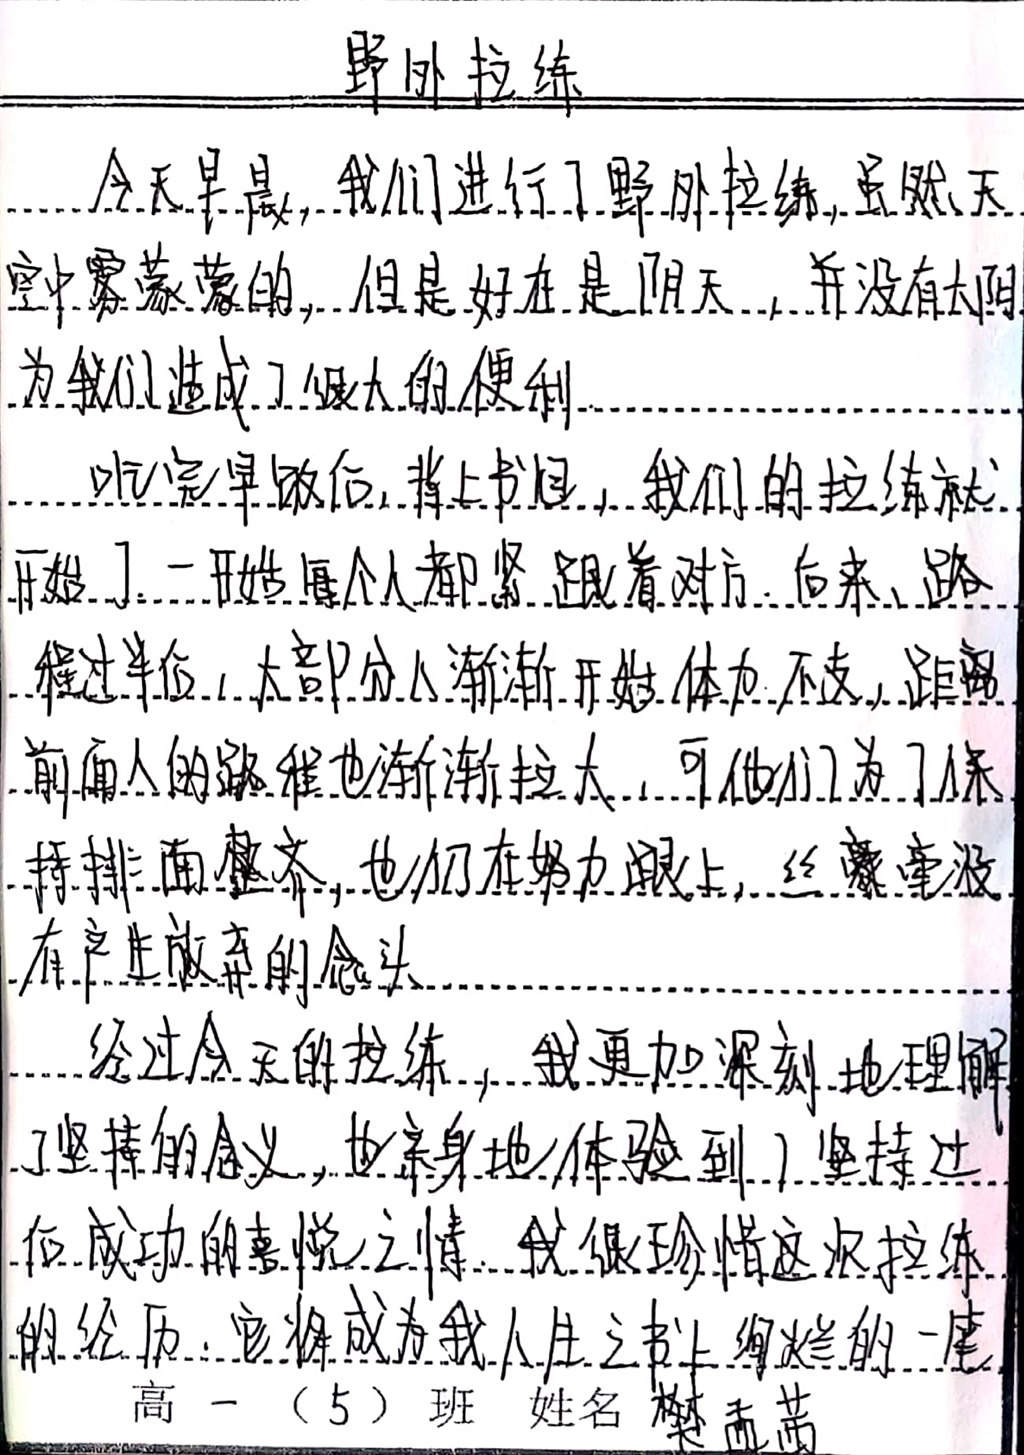 野外拉练
今天早晨，我们进行了野外拉练，虽然天
空中雾蒙蒙的，但是好在是阴天，并没有太阳
为我们造成了很大的便利
吃完早饭后，背上书包，我们的拉练就
开始了.一开始每个人都紧跟着对方.后来、路
程过半后，大部分人渐渐开始体力不支，距离
前面人的路程也渐渐拉大，可他们为了保
持排面整齐，也仍在努力跟上，丝毫没
有产生放弃的念头
经过今天的拉练，我更加深刻地理解
了坚持的含义，也亲身地体验到了坚持过
后成功的喜悦之情.我很珍惜这次拉练
的经历.它将成为我人生之书上绚烂的一笔
高一（5）班 姓名 樊